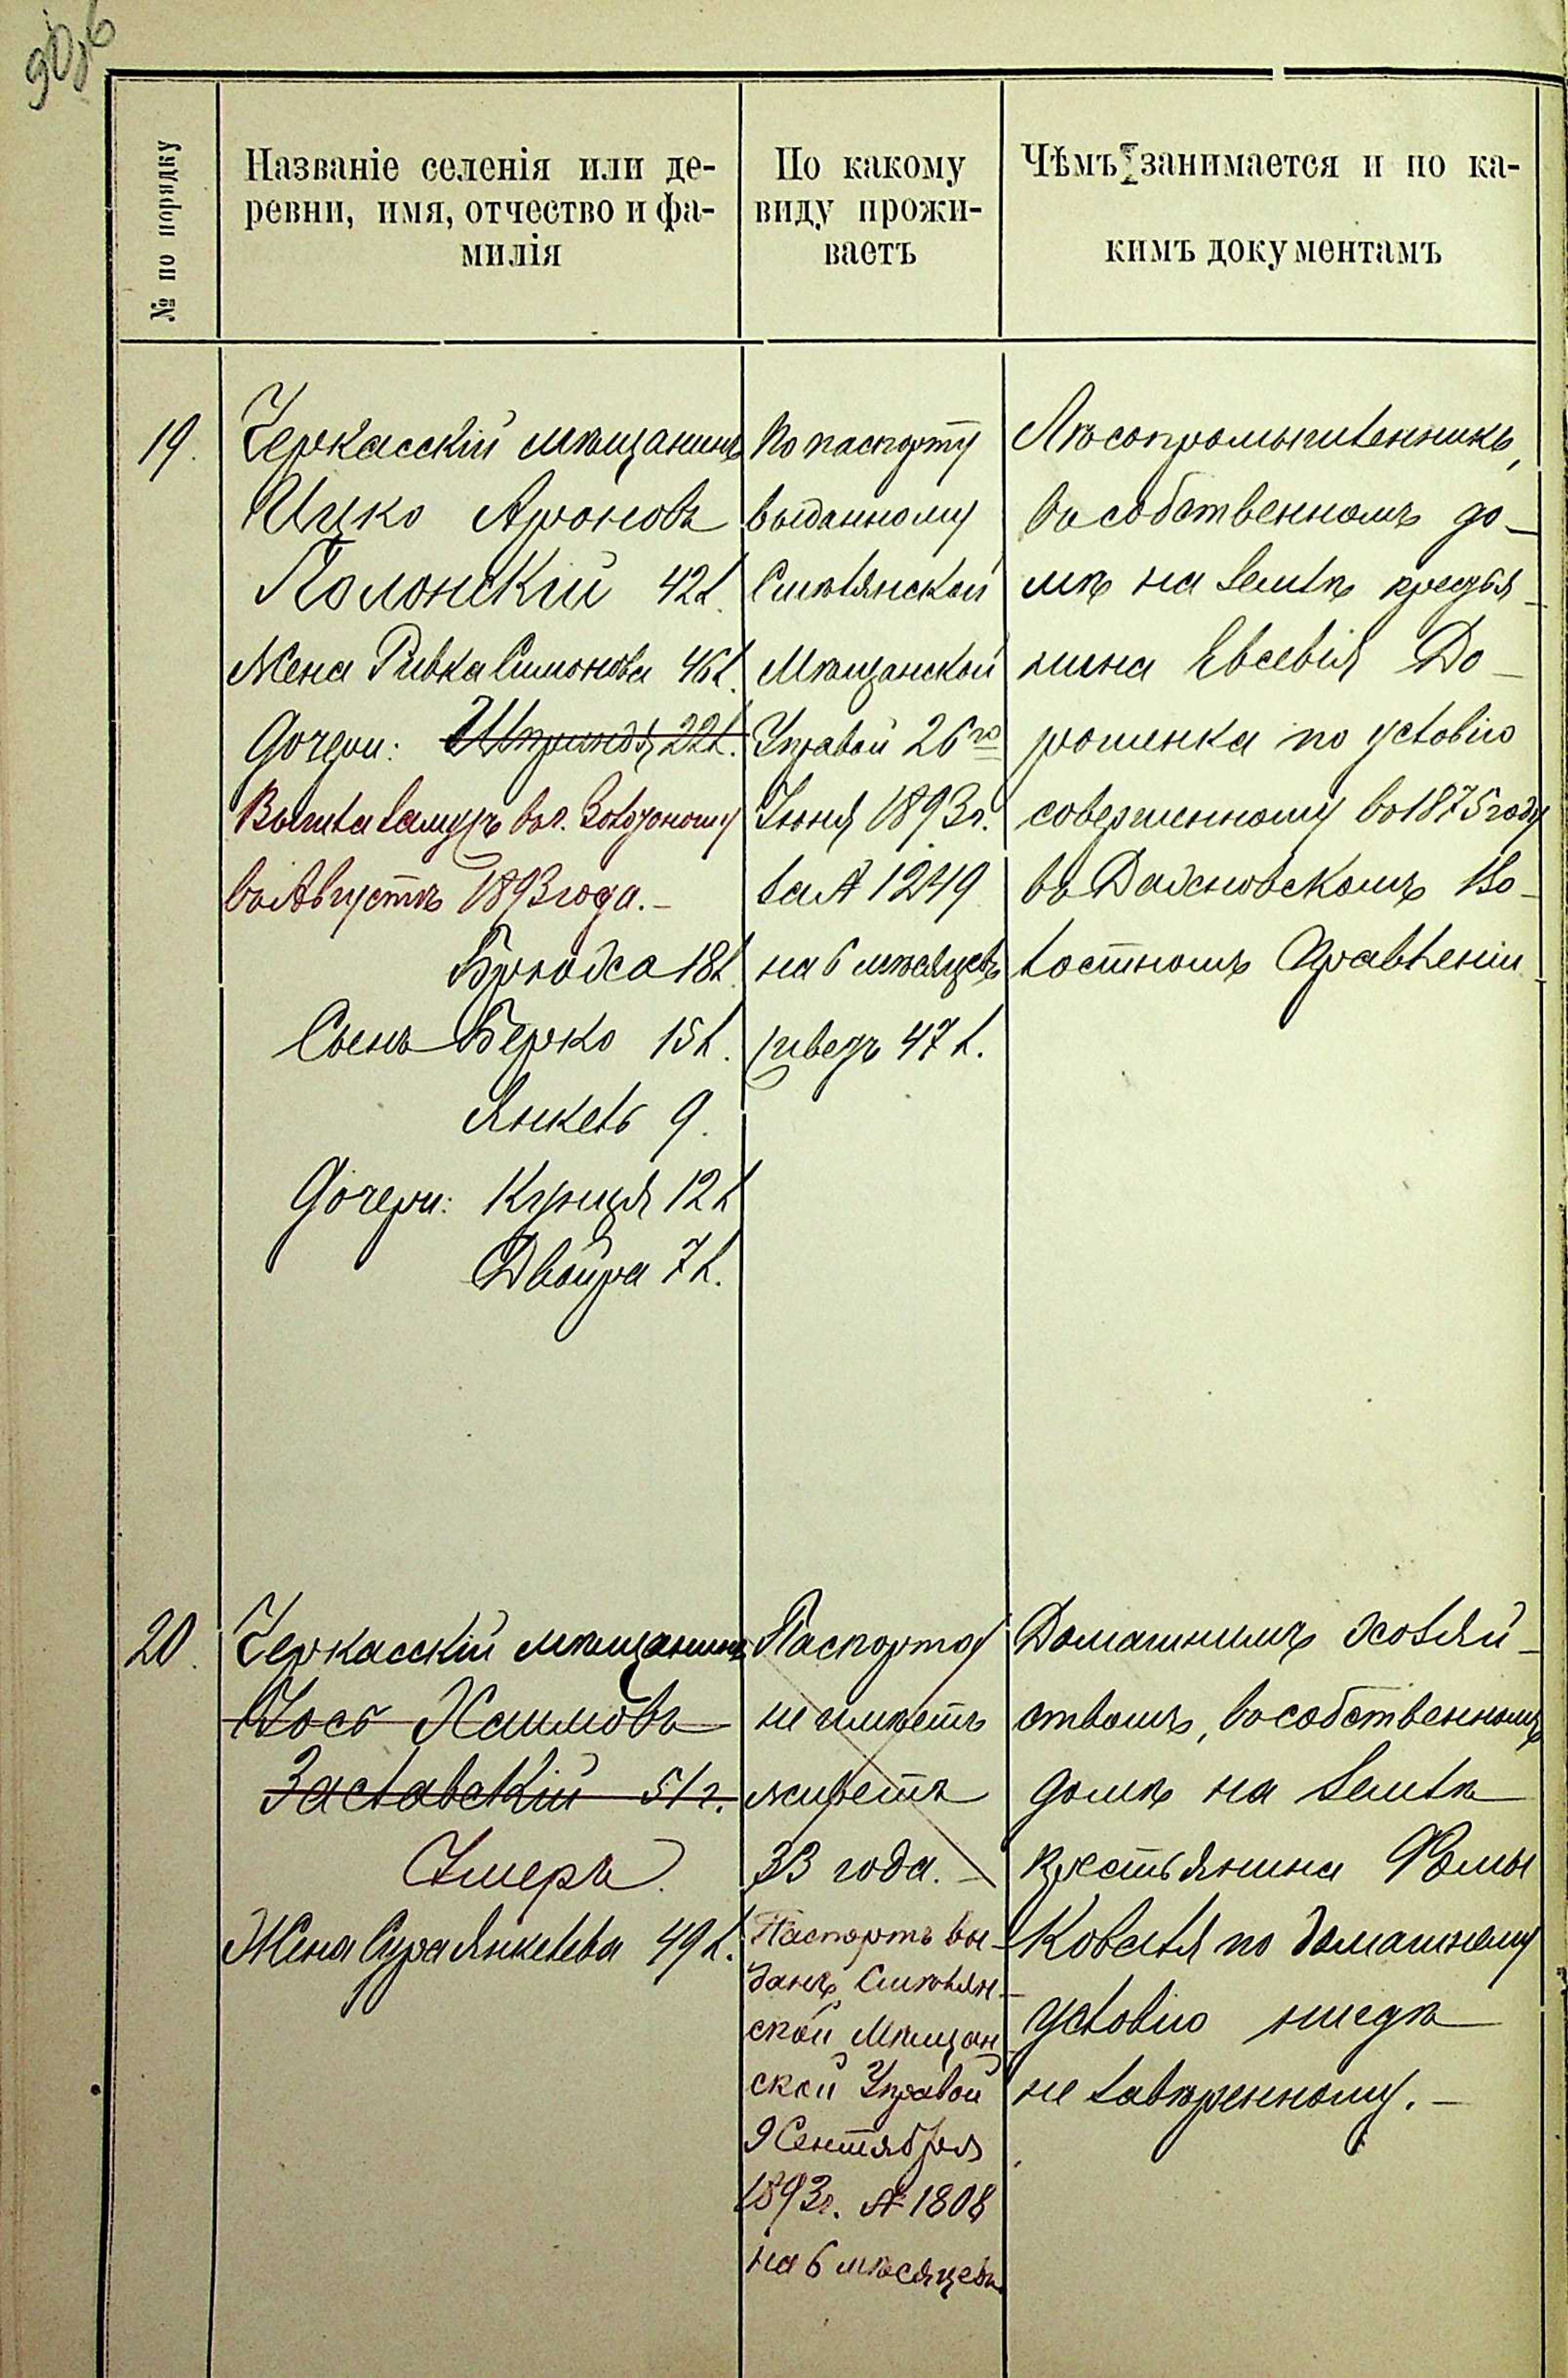 № по порядку
Названіе селенія или де-
ревни, имя, отчество и фа-
милія
По какому
виду прожи-
ваетъ
Чѣмъ занимается и по ка-
кимъ документамъ
19.
Черкасскій мѣщанинъ
Ицко Ароновъ
Полонскій 42 л.
Жена Ривка Симонова 46 л.
Дочери: Шприндя, 22 л.
Вышла замужъ въ г. Золотоношу
въ Августѣ 1893 года. —
Брходса 18 л.
Сынъ Берко 15 л.
Янкель 9.
Дочери: Куция 12 л
Двойра 7 л.
По паспорту
выданному
Смѣлянской
Мѣщанской
Управой 26го
Іюня 1893 г.
за № 1249
на 6 мѣсяцевъ
живетъ 47 л.
Лѣсопромышленникъ,
въ собственномъ до-
мѣ на землѣ кресть-
янина Евсевія До-
рошенка по условію
совершенному въ 1875 году
въ Дахновскомъ Во-
лостномъ Правленіи
20.
Черкасскій мѣщанинъ
Іось Хаимовъ
Заславскій 51 г.
Умеръ.
Жена Сура Янкелева 49 л.
Паспорта
не имѣетъ
живетъ
33 года. —
Паспортъ вы-
данъ Смѣлян-
ской Мѣщан
ской Управой
9 Сентября
1893 г. № 1808
на 6 мѣсяцевъ
Домашнимъ хозяй-
ствомъ, въ собственномъ
домѣ на землѣ
крестьянина Фомы
Коваля по домашнему
условію нигдѣ
не завѣренному. —